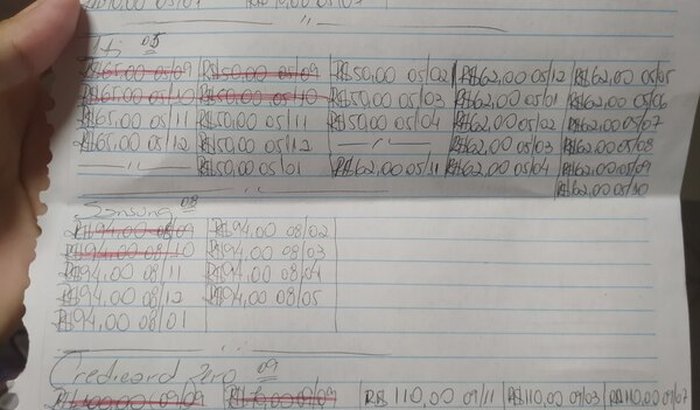 Iti 05
R$65,00 05/09 R$50,00 05/09 R$50,00 05/02 R$62,00 05/12 R$62,00 05/05
R$65,00 05/10 R$50,00 05/10 R$50,00 05/03 R$62,00 05/01 R$62,00 05/06
R$65,00 05/11 R$50,00 05/11 R$50,00 05/04 R$62,00 05/02 R$62,00 05/07
R$65,00 05/12 R$50,00 05/12 R$62,00 05/03 R$62,00 05/08
R$50,00 05/01 R$62,00 05/11 R$62,00 05/04 R$62,00 05/09
R$62,00 05/10
Samsung 08
R$94,00 08/09 R$94,00 08/02
R$94,00 08/10 R$94,00 08/03
R$94,00 08/11 R$94,00 08/04
R$94,00 08/12 R$94,00 08/05
R$94,00 08/01
Credicard Zero 09
09/09 09/09 R$ 110,00 09/11 R$110,00 09/03 R$110,00 09/07